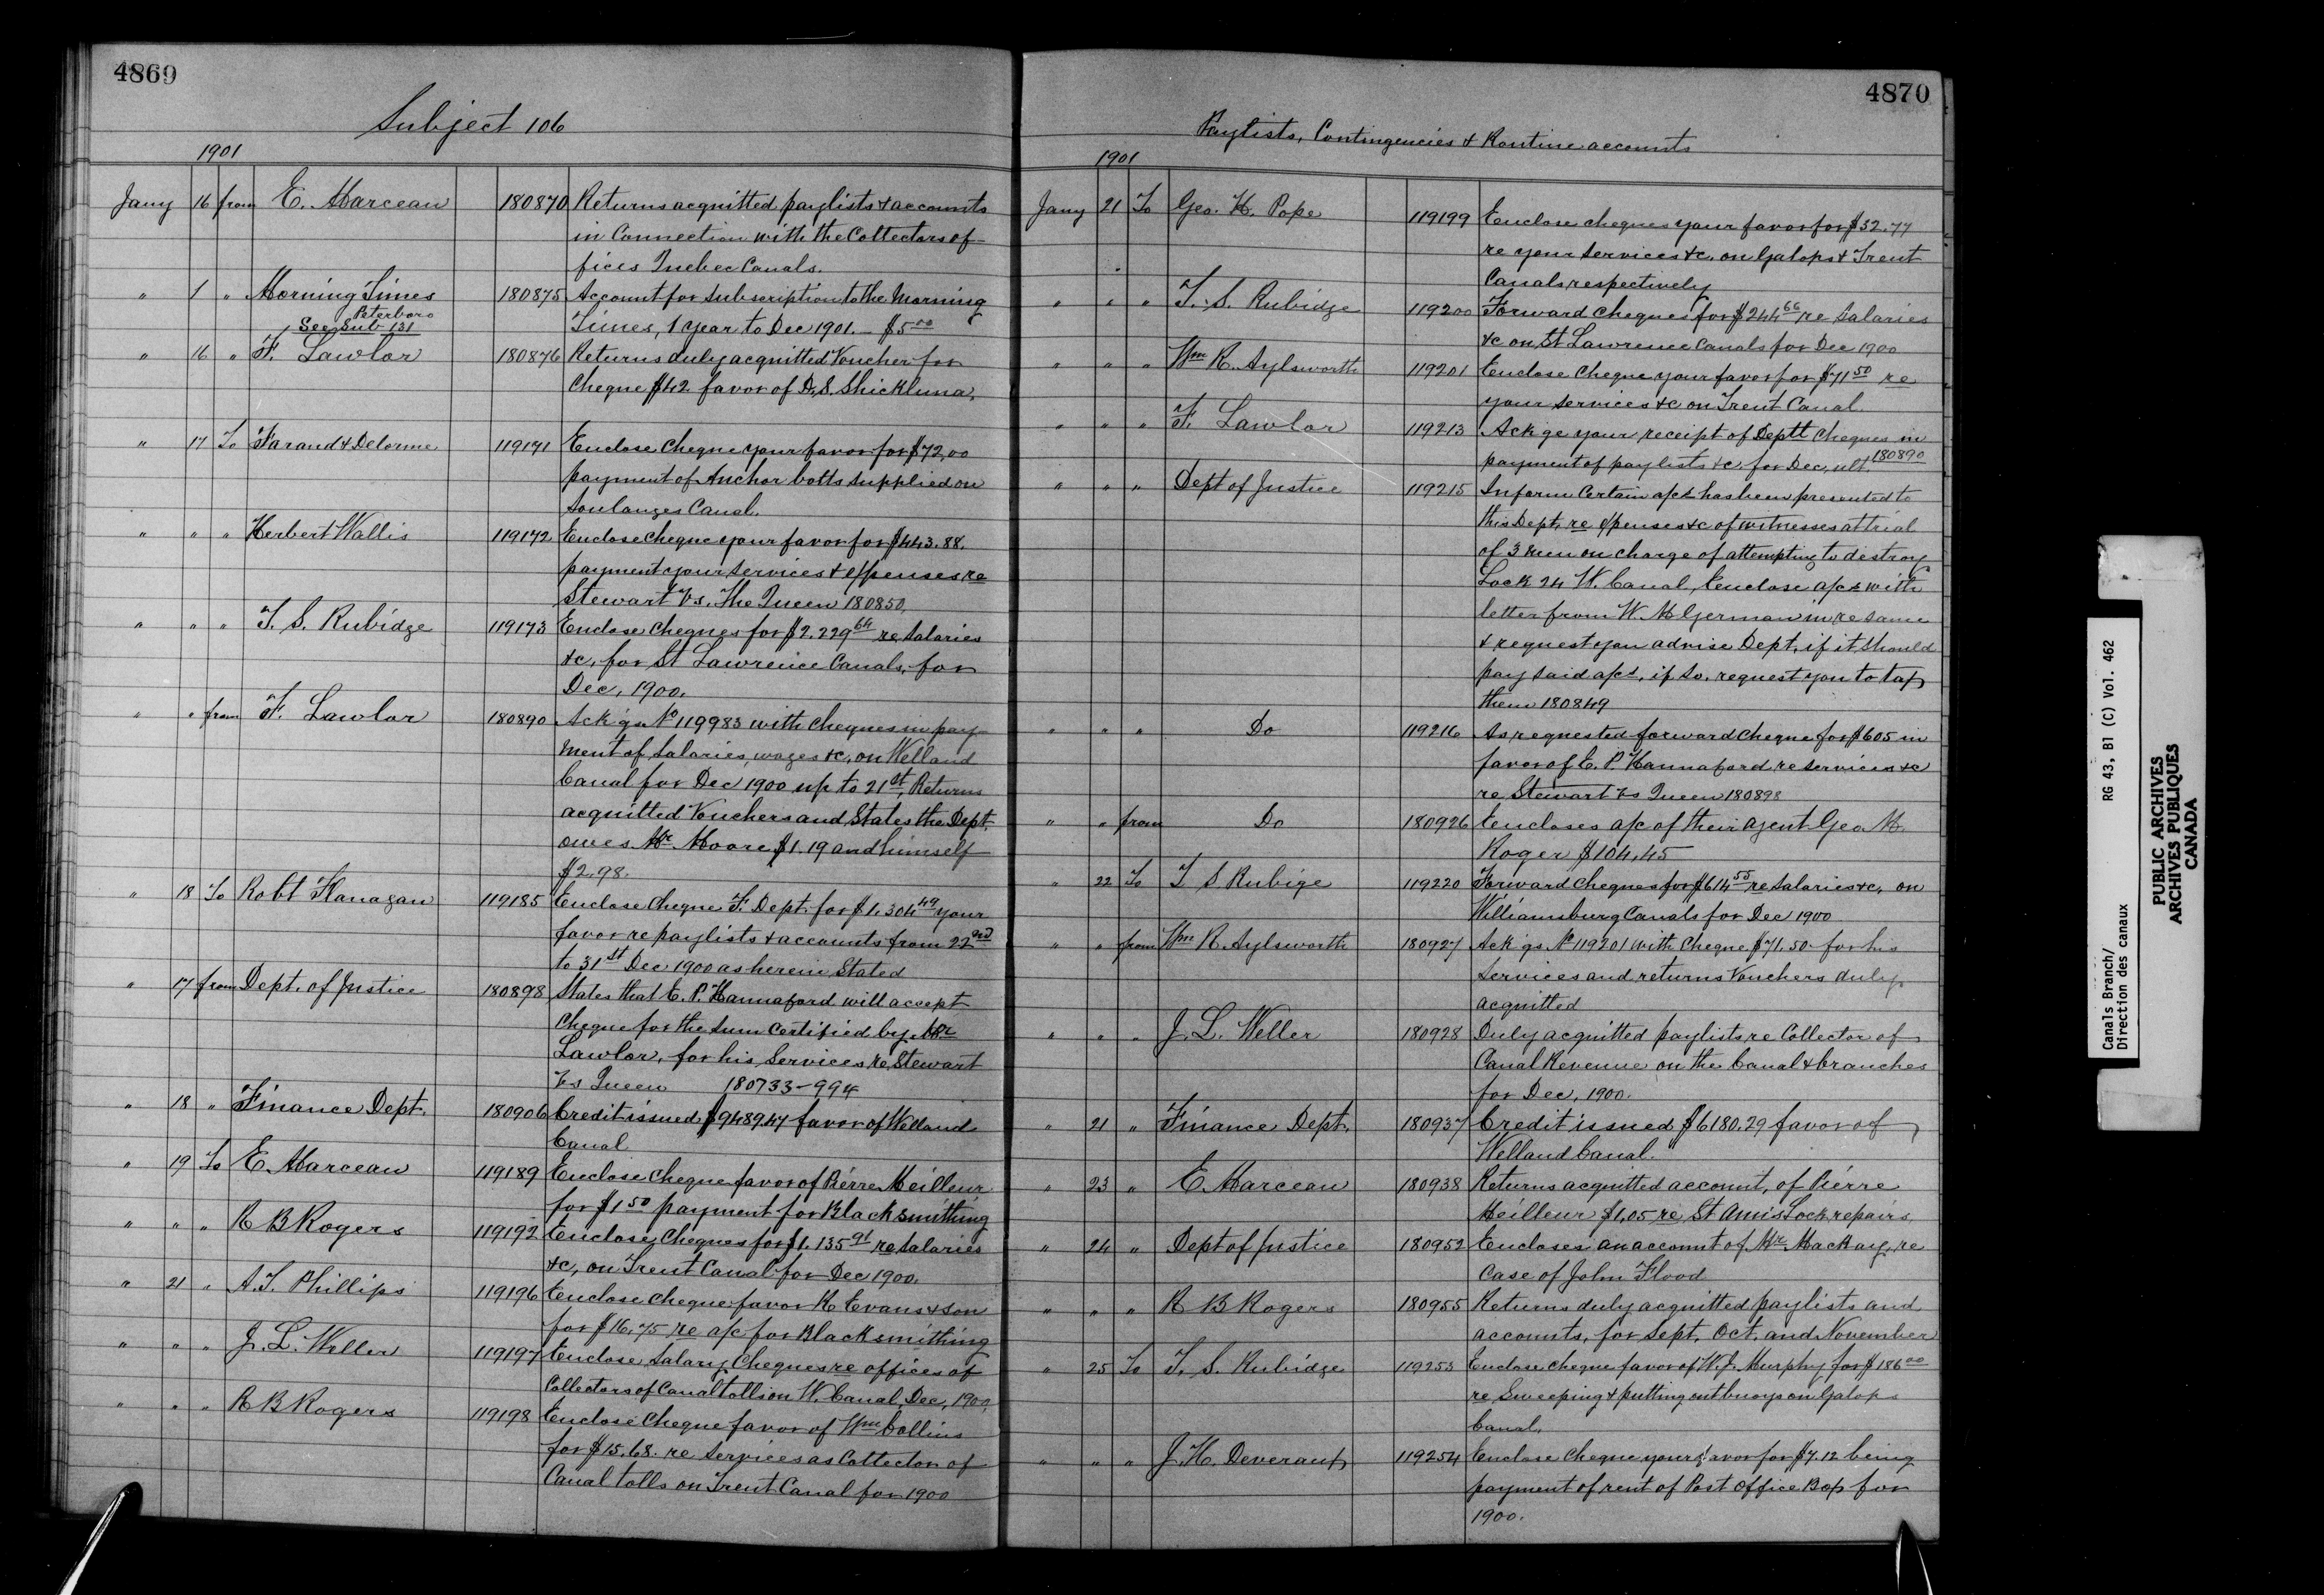 4869
Subject 106
1901
Jany 16 from E. Marceau 180870 Returns acquitted paylists & accounts
in Connection with the Collectors of-
fices Quebec Canals.
" 1 " Morning Times 180875 Account for subscription to the Morning
Peterboro
See Sub 131 Times, 1 year to Dec 1901. — $5.00
" 16 " F. Lawlor 180876 Returns duly acquitted Voucher for
Cheque $42 favor of D. S. Shickluna.
" 17 To Farand & Delorme 119171 Enclose Cheque your favor for $72,00
payment of Anchor bolts supplied on
Soulanges Canal.
" " " Herbert Wallis 119172 Enclose Cheque your favor for $443.88.
payment your services & expenses re
Stewart Vs. The Queen 180850
" " " T. S. Rubidge 119173 Enclose Cheques for $2.229 64 re Salaries
&c, for St Lawrence Canals, for
Dec, 1900.
" " from F. Lawlor 180890 Ack'gs No 119983 with Cheques in pay-
ment of Salaries, wages &c, on Welland
Canal for Dec 1900 up to 21st, Returns
acquitted Vouchers and States the Dept.
owes Mr Moore $1.19 and himself
$2.98.
" 18 To Robt Flanagan 119185 Enclose Cheque F. Dept. for $1.304 49 your
favor re paylists & accounts from 22nd
to 31st Dec 1900 as herein Stated
" 17 from Dept. of Justice 180898 States that E. P. Hannaford will accept
Cheque for the Sum Certified by Mr
Lawlor, for his Services re Stewart
Vs Queen 180733-994
" 18 " Finance Dept. 180906 Credit issued $9489.47 favor of Welland
Canal
" 19 To E. Marceau 119189 Enclose Cheque favor of Pierre Meilleur
for $1 50 payment for Blacksmithing
" " " R B Rogers 119192 Enclose Cheques for $1.135 91 re Salaries
&c, on Trent Canal for Dec 1900.
" 21 " A. T. Phillips 119196 Enclose Cheque favor R Evans & son
for $16.75 re a/c for Blacksmithing
" " " J. L. Weller 119197 Enclose Salary Cheques re offices of
Collectors of Canal tolls on W. Canal, Dec, 1900,
" " " R B Rogers 119198 Enclose Cheque favor of Wm Collins
for $15.68. re Services as Collector of
Canal tolls on Trent Canal for 1900
4870
Paylists, Contingencies & Routine accounts
1901
Jany 21 To Geo. H. Pope 119199 Enclose cheques your favor for $32.77
re your services &c. on Galops & Trent
Canals respectively
" " " T. S. Rubidge 119200 Forward Cheques for $244 66 re Salaries
&c on St Lawrence Canals for Dec 1900
" " " Wm R. Aylsworth 119201 Enclose Cheque your favor for $71 50 re
your services &c on Trent Canal
" " " F. Lawlor 119213 Ack'ge your receipt of Deptl Cheques in
payment of paylists &c, for Dec, ult. 180890
" " " Dept of Justice 119215 Inform Certain a/cs has been presented to
this Dept, re expenses &c of witnesses at trial
of 3 men on charge of attempting to destroy
Lock 24 W. Canal, Enclose a/cs with
letter from W. M German in re same
& request you advise Dept. if it should
pay said a/cs, if so, request you to tax
them 180849
" " " Do 119216 As requested forward Cheque for $605 in
favor of E. P. Hannaford re services &c
re Stewart Vs Queen 180898
" " from Do 180926 Encloses a/c of their agent Geo M.
Roger $104,45
" 22 To T S Rubige 119220 Forward Cheques for $614 55 re Salaries &c, on
Williamsburg Canals for Dec 1900
" " from Wm R. Aylsworth 180927 Ack'gs No 119201 with Cheque $71,50 for his
Services and returns Vouchers duly
acquitted
" " " J. L. Weller 180928 Duly acquitted paylists re Collector of
Canal Revenue on the Canal & branches
for Dec, 1900.
" 21 " Finance Dept. 180937 Credit issued $6180.29 favor of
Welland Canal.
" 23 " E Marceau 180938 Returns acquitted account, of Pierre
Meilleur $1,05 re St Anns Lock, repairs
" 24 " Dept of Justice 180952 Encloses an account of Mr Mackay, re
Case of John Flood
" " " R B Rogers 180955 Returns duly acquitted paylists and
accounts, for Sept, Oct, and November
" 25 To T. S. Rubidge 119253 Enclose Cheque favor of W. J. Murphy for $186 00
re Sweeping & putting out buoys on Galops
Canal.
" " " J. H. Deveraux 119254 Enclose Cheque your favor for $7.12 being
payment of rent of Post Office Box for
1900.
Canals Branch/ RG 43, B1 (C) Vol. 462
Direction des canaux
PUBLIC ARCHIVES
ARCHIVES PUBLIQUES
CANADA